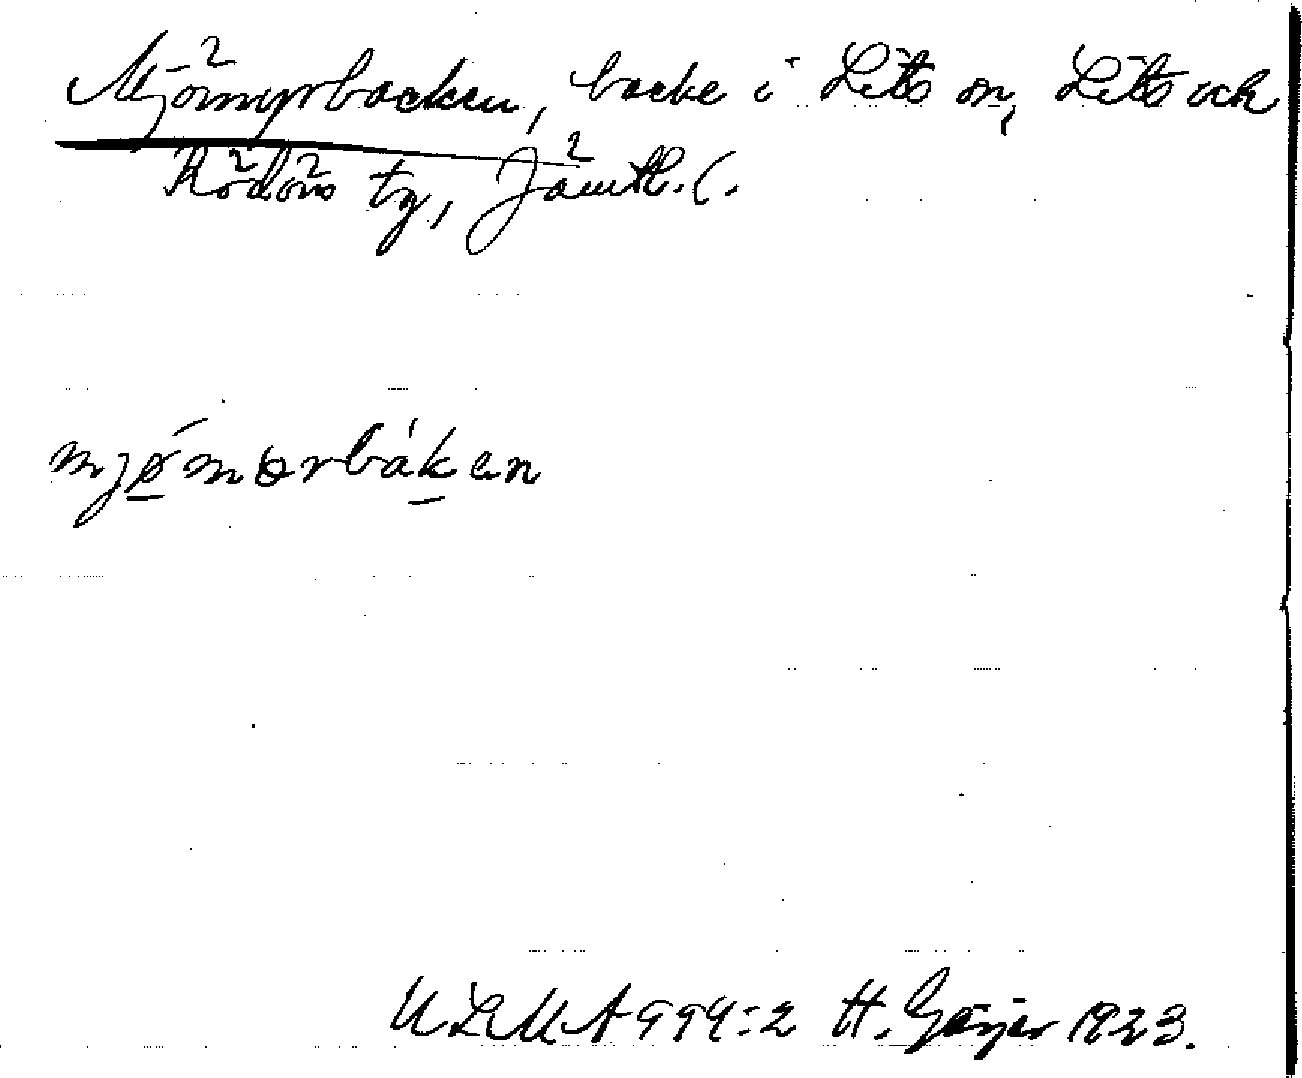 Mjömyrbacken, backe i Lits sn, Lits och
Rödöns tg, Jämtl. l.
mjǿmorbák en
ULMA 994:2 H. Geijer 1923.